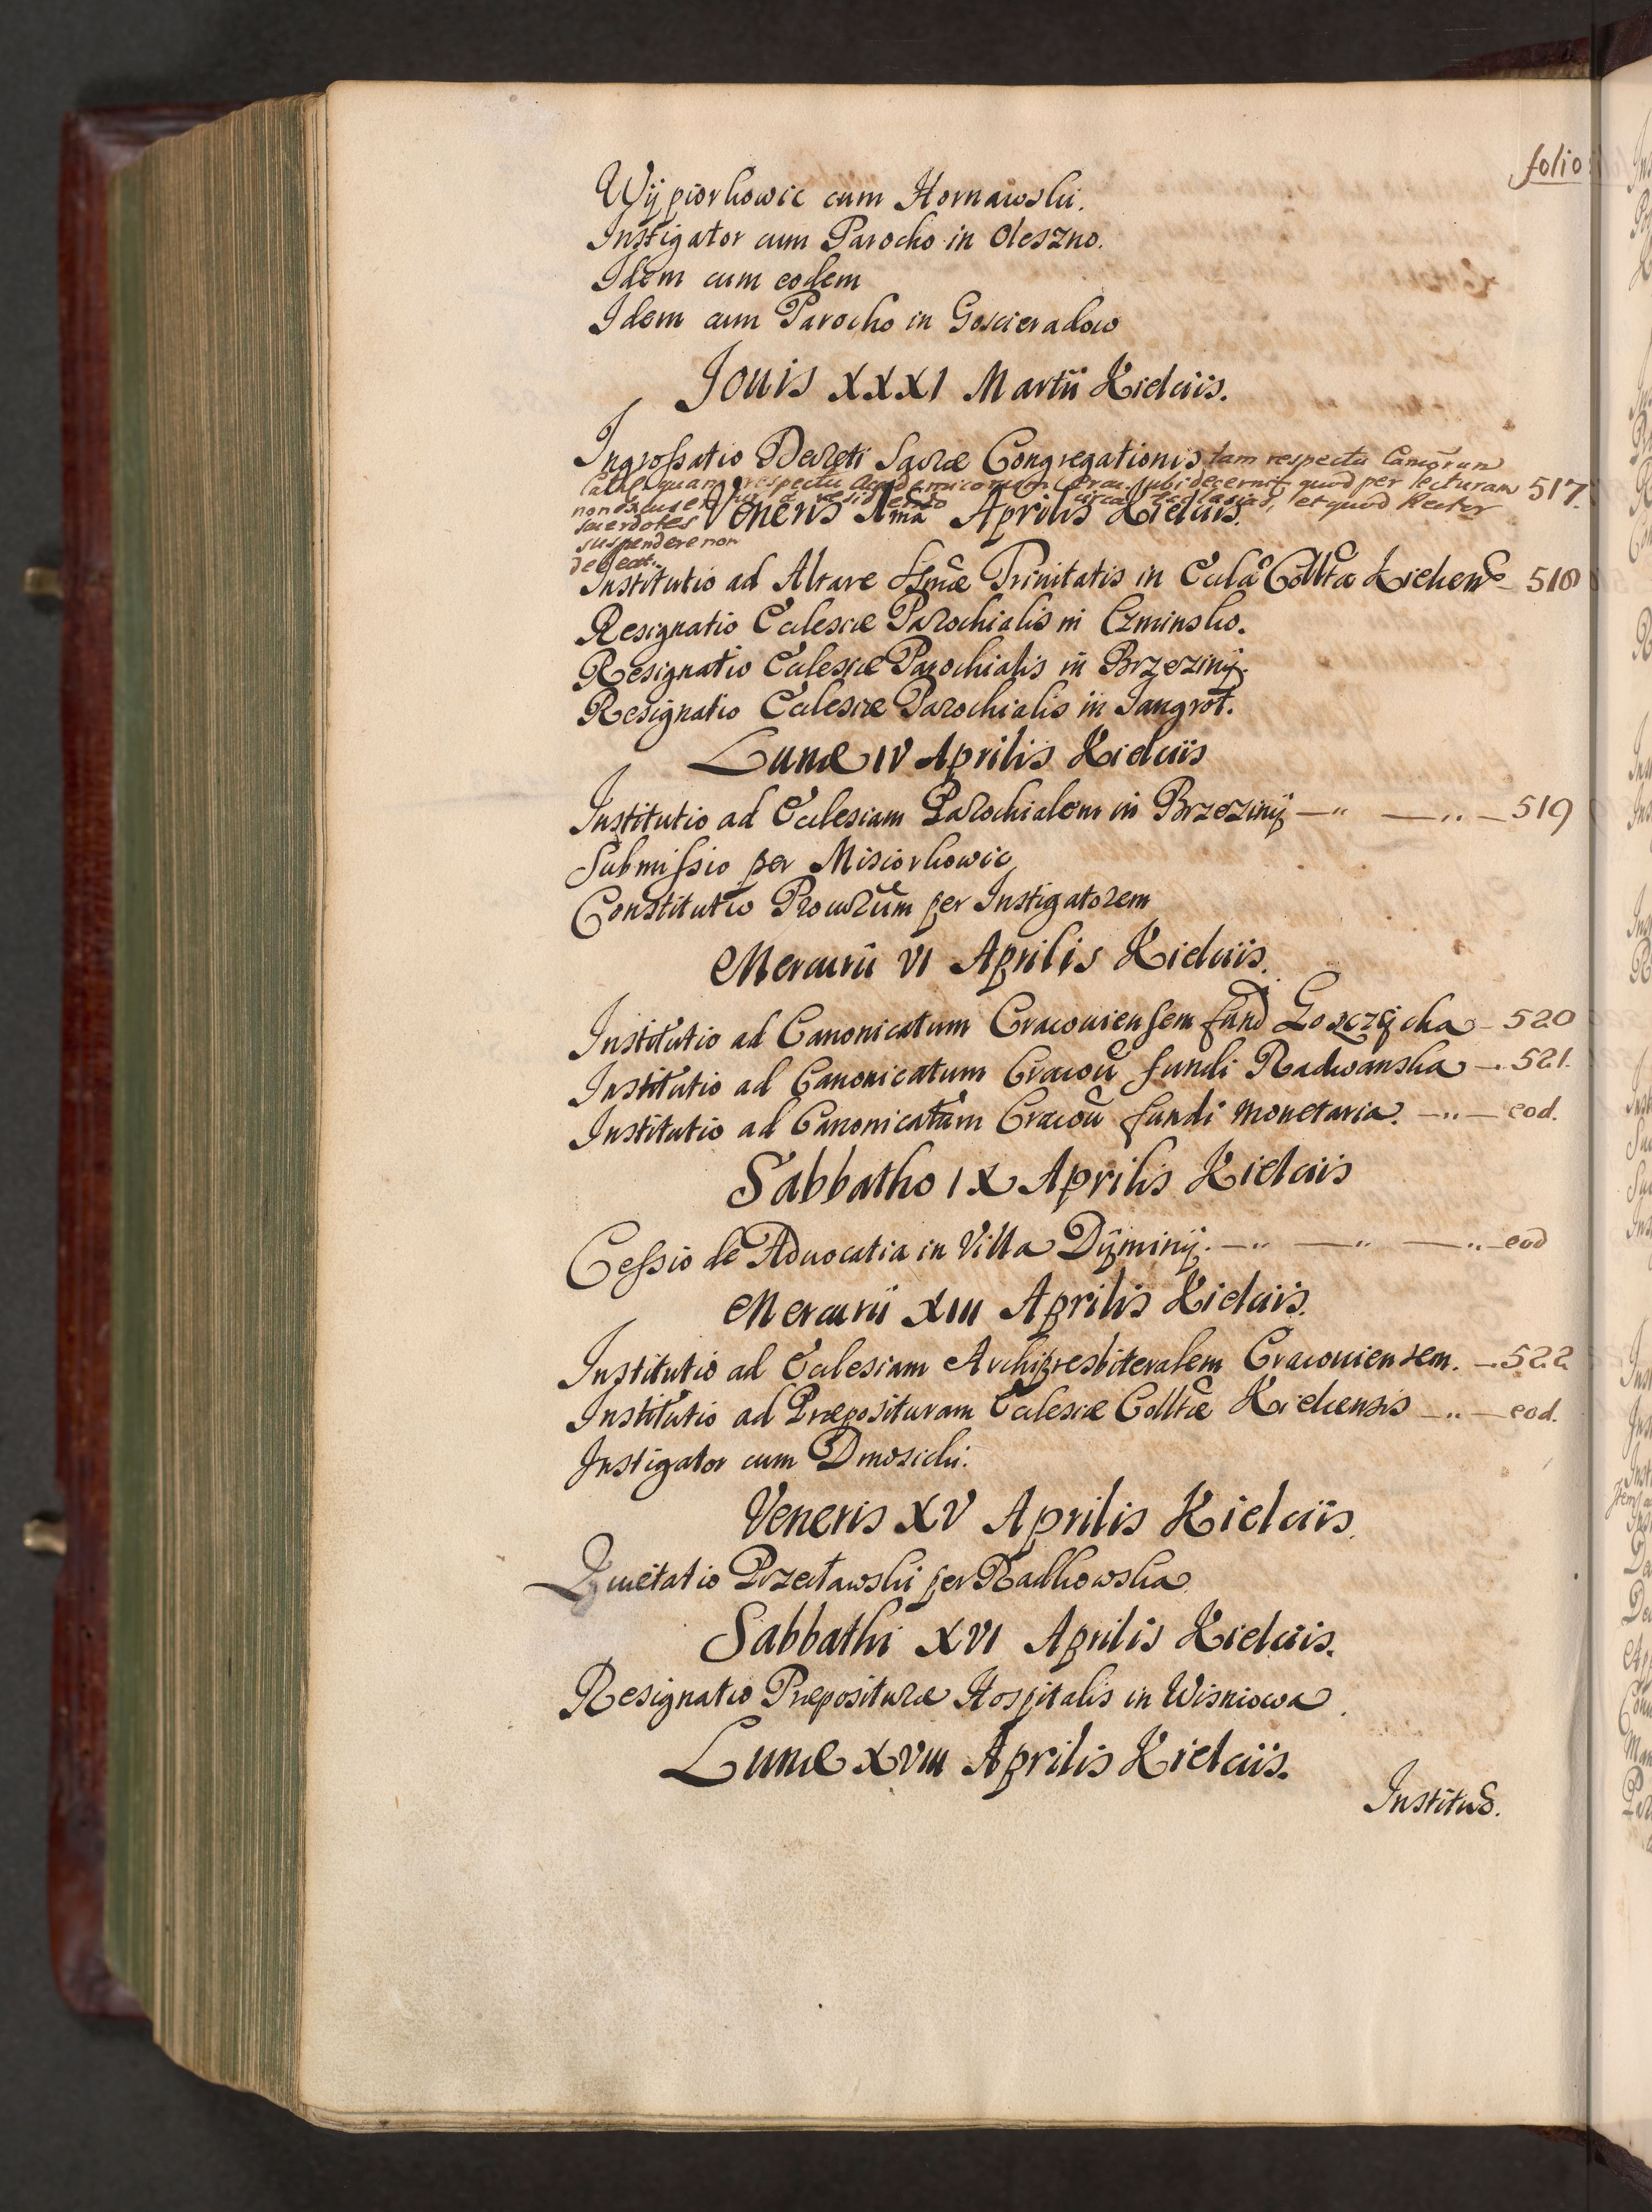 folio
Wÿpiorkowic cum Hornawski.
Instigator cum Parocho in Oleszno.
Idem cum eodem
Idem cum Parocho in Goscieradow
Jouis XXXI Martii Kielciis.
Ingrossatio Decreti Sacræ Congregationis, tam respectu Canōrum
Cathl quam respectu Academicorum Crac. ubi decernit quod per lecturam 517.
non excusentur a residendo circa Ecclesias, et quod Rector
sacerdotes
suspendere non
debeat.
Veneris 1mā Aprilis Kielciis.
Institutio ad Altare SSmæ Trinitatis in Eccla Colltā Kielcens – 518
Resignatio Ecclesiæ Parochialis in Czminsko.
Resignatio Ecclesiæ Parochialis in Brzezinÿ.
Resignatio Ecclesiæ Parochialis in Jangrot.
Lunæ IV Aprilis Kielciis
Institutio ad Ecclesiam Parochialem in Brzezinÿ —" —.. — 519
Submissio per Misiorkowic
Constitutio Procurūm per Instigatorem
Mercurii VI Aprilis Kielciis.
Institutio ad Canonicatum Cracouiensem fund Goszczÿcka – 520
Institutio ad Canonicatum Cracoū fundi Radwanska –. 521.
Institutio ad Canonicatum Cracoū fundi Monetaria. –..– eod.
Sabbatho IX Aprilis Kielciis
Cessio de Aduocatia in Villa Dÿminÿ. —" —" —.. – eod
Mercurii XIII Aprilis Kielciis.
Institutio ad Ecclesiam Archipresbiteralem Cracouiensem. –. 522
Institutio ad Præposituram Ecclesiæ Colltæ Kielcensis –..– eod.
Instigator cum Dmosicki.
Veneris XV Aprilis Kielciis.
Quietatio Przecławski per Radkowska
Sabbathi XVI Aprilis Kielciis.
Resignatio Præposituræ Hospitalis in Wisniowa.
Lunæ XVIII Aprilis Kielciis.
Institūo.